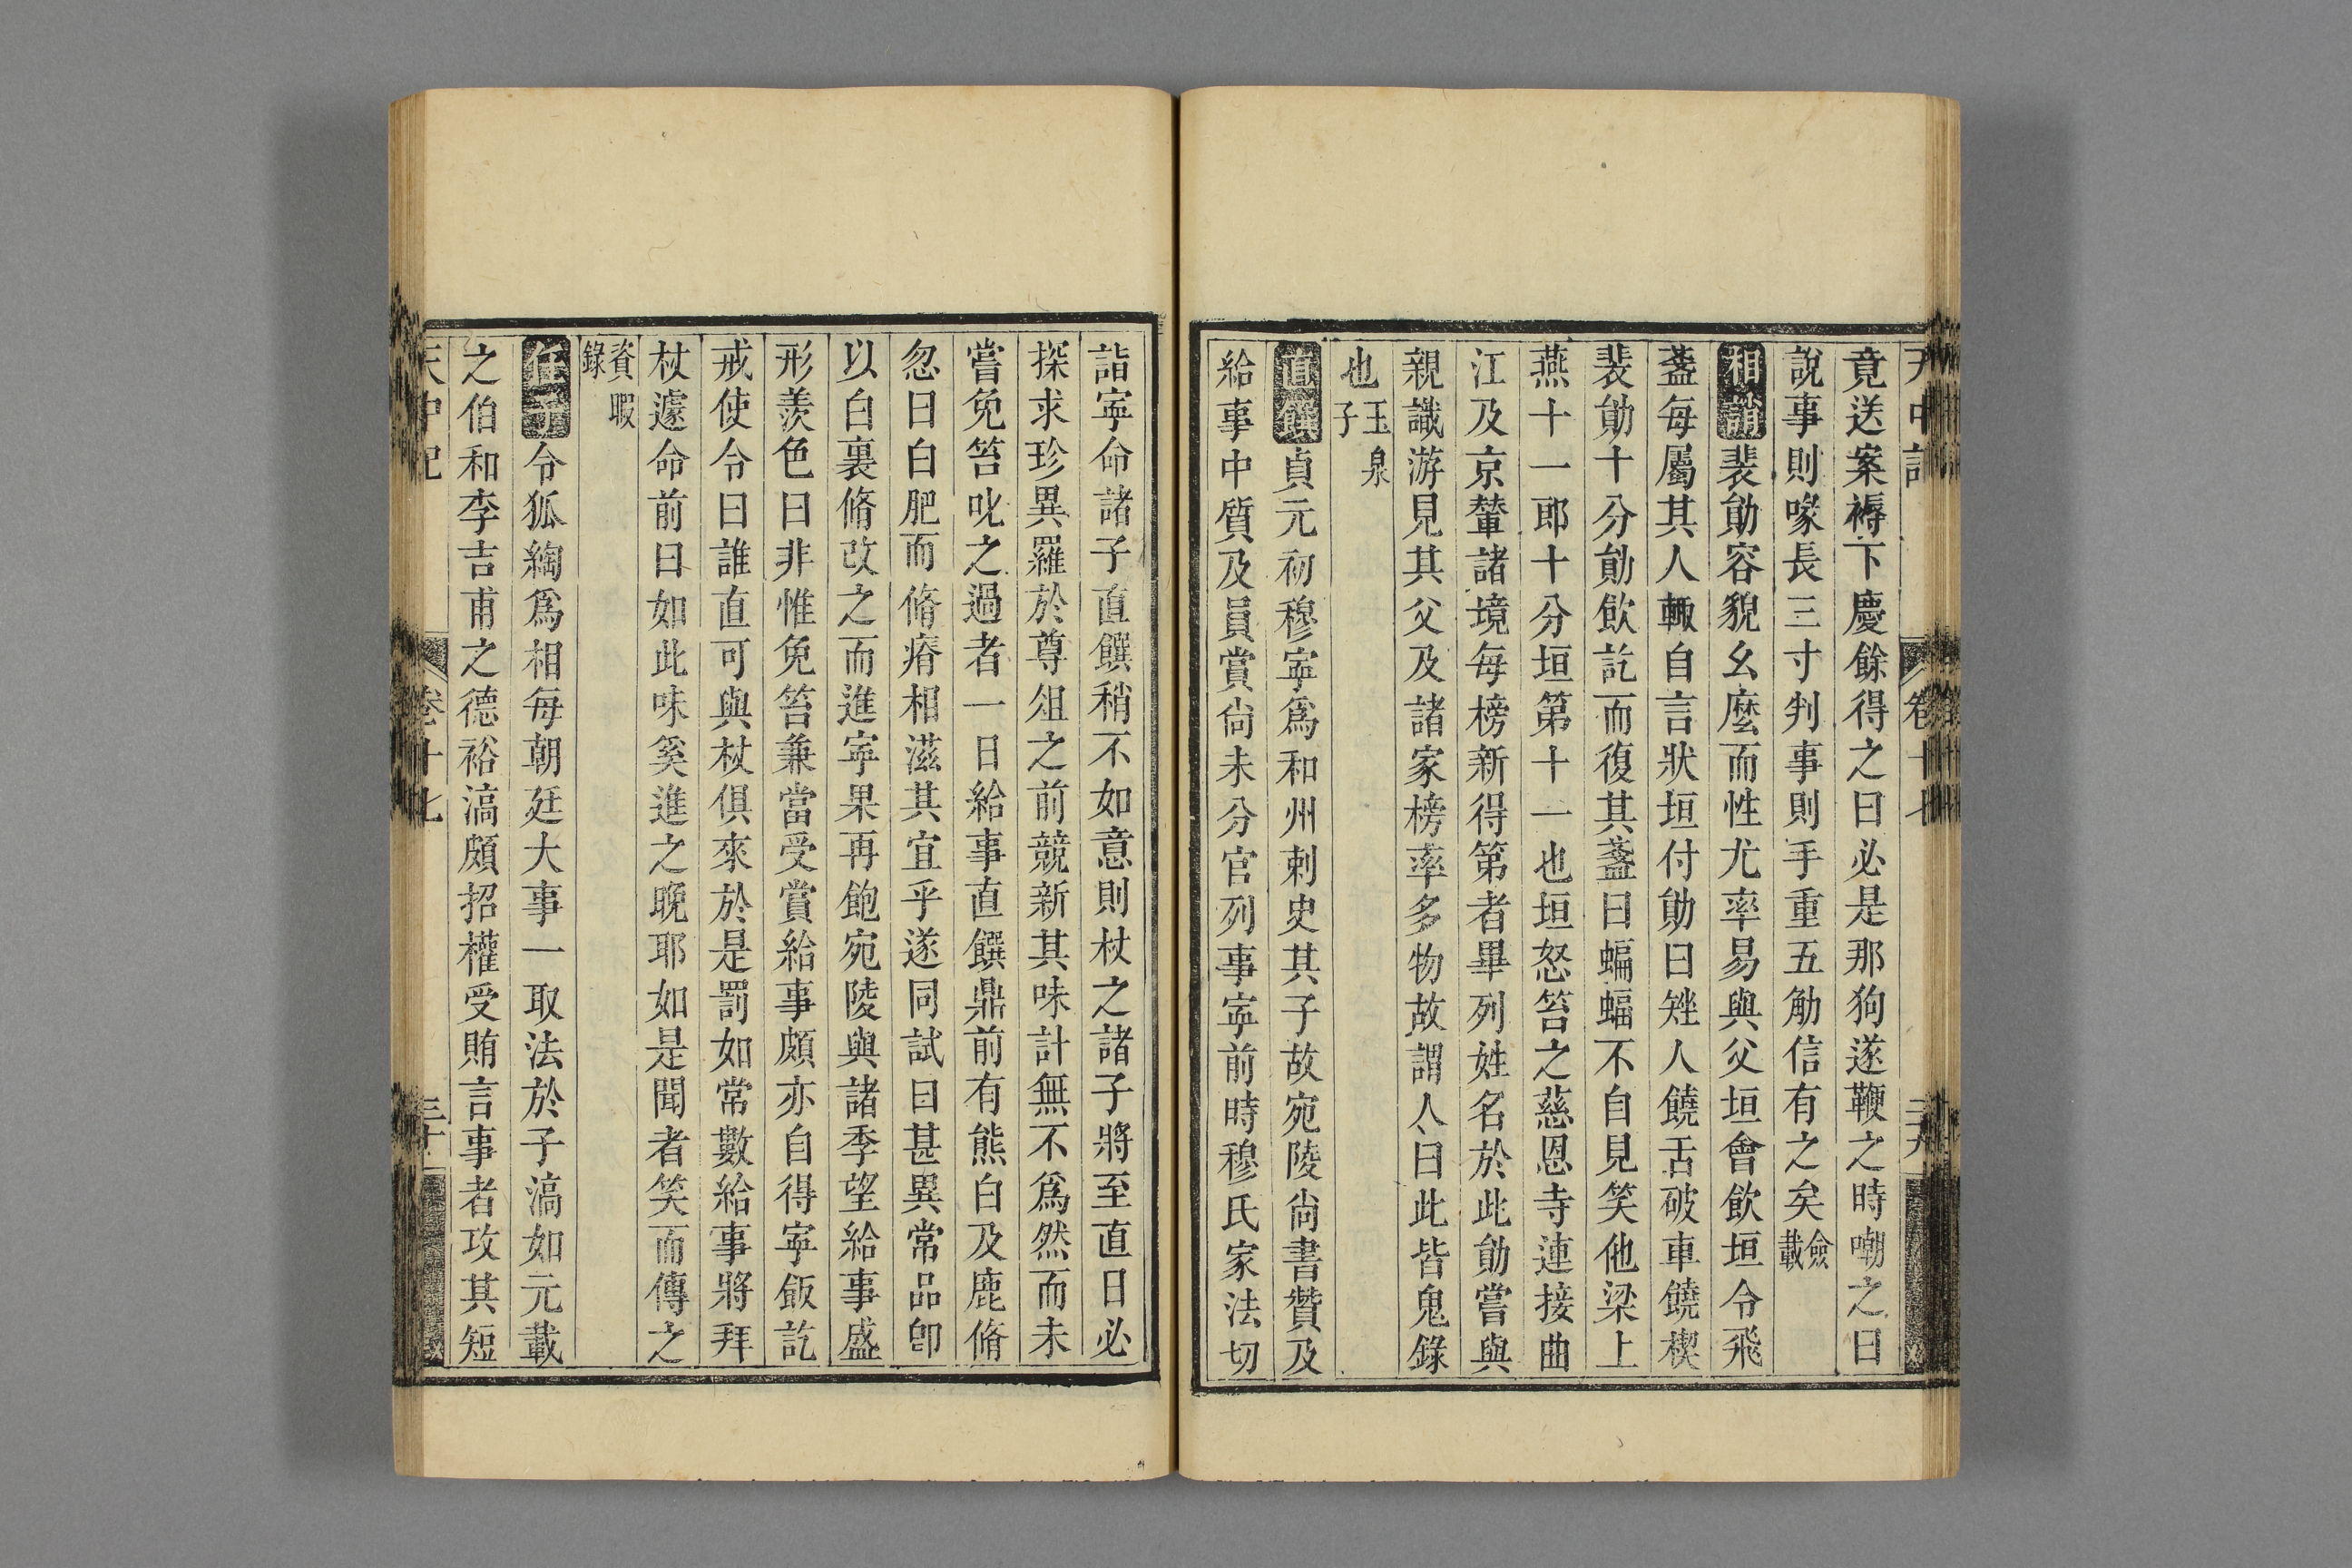 天中記 卷十七 二十九
竟送案褥下慶餘得之曰必是那狗遂鞭之時嘲之曰
說事則喙長三寸判事則手重五觔信有之矣僉載
相誚裴勛容貌幺麽而性尤率易與父垣會飲垣令飛
盞每屬其人輙自言狀垣付勛曰矬人饒舌破車饒楔
裴勛十分勛飲訖而復其盞曰蝙蝠不自見笑他梁上
燕十一郎十分垣第十一也垣怒笞之慈恩寺連接曲
江及京輦諸境每榜新得第者畢列姓名於此勛嘗與
親識游見其父及諸家榜率多物故謂人曰此皆鬼錄
也玉泉子
直饌貞元初穆寧爲和州刺史其子故宛陵尚書贊及
給事中質及員賞尚未分官列事寧前時穆氏家法切
詣寧命諸子直饌稍不如意則杖之諸子將至直日必
探求珍異羅於尊俎之前競新其味計無不爲然而未
嘗免笞叱之過者一日給事直饌鼎前有熊白及鹿脩
忽曰白肥而脩瘠相滋其宜乎遂同試曰甚異常品卽
以白裏脩改之而進寧果再飽宛陵與諸季望給事盛
形羨色曰非惟免笞兼當受賞給事頗亦自得寧飯訖
戒使令曰誰直可與杖俱來於是罰如常數給事將拜
杖遽命前曰如此味奚進之晚耶如是聞者笑而傳之
資暇錄
任子令狐綯爲相每朝廷大事一取法於子滈如元載
之伯和李吉甫之德裕滈頗招權受賄言事者攻其短
天中記 卷十七 三十